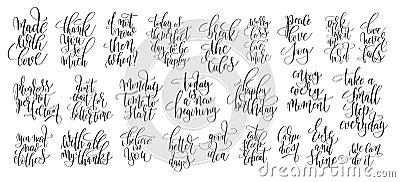 made
with
love
thank
you
so
much
if not
now
then
when?
today is
the perfect
day to be
happy
break
the
rules
worry
less
peace
love
joy
love
never
fails
progress
not
perfection
don't
wait for
better time
monday
time to
start
today
is a new
beginning
happy
birthday
enjoy
every
moment
take a
small
step
everyday
you and
more
clothes
with all
my thanks
believe
in you
better
days
good
idea
eat
sleep
repeat
carpe
diem
rise
and
shine
we can
do it